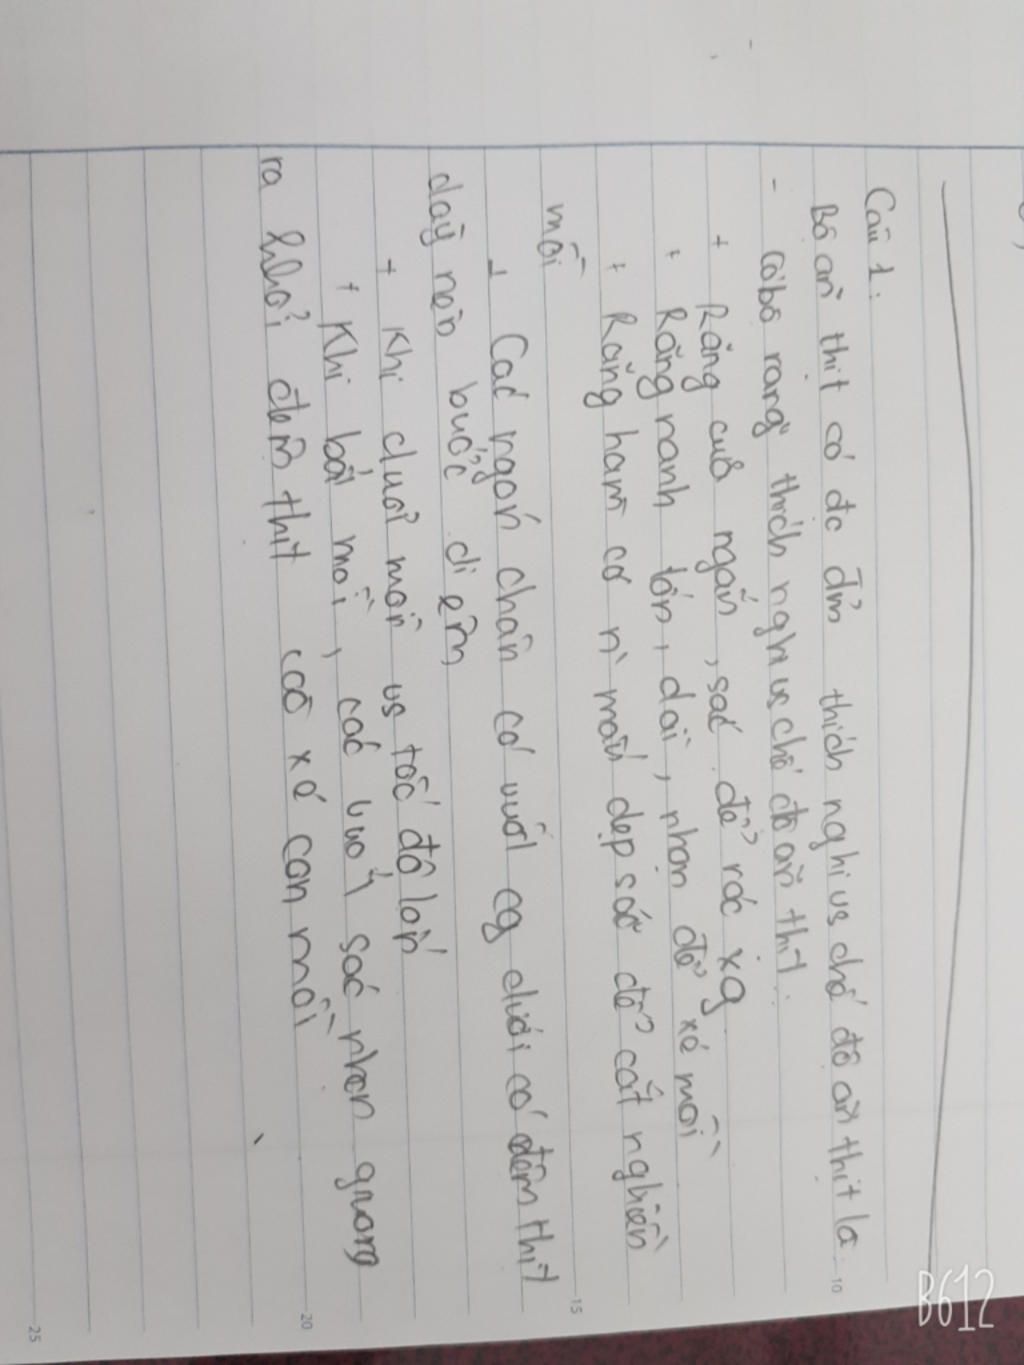 Câu 1:
Bộ ăn thịt có đc đ² thích nghi vs chế độ ăn thịt là:
- có bộ răng thích nghi vs chế độ ăn thịt:
+ Răng cửa ngắn, sắc để róc xg
+ Răng nanh lớn, dài, nhọn để xé mồi
+ Răng hàm có n` mấu dẹp sắc để cắt nghiền
mồi
+ Các ngón chân có vuốt cg dưới có đệm thịt
dày nên bước đi êm
+ Khi đuổi mồi vs tốc độ lớn
+ Khi bắt mồi, các vuốt sắc nhọn giương
ra khỏi đệm thịt cào xé con mồi
10
15
20
25
B612